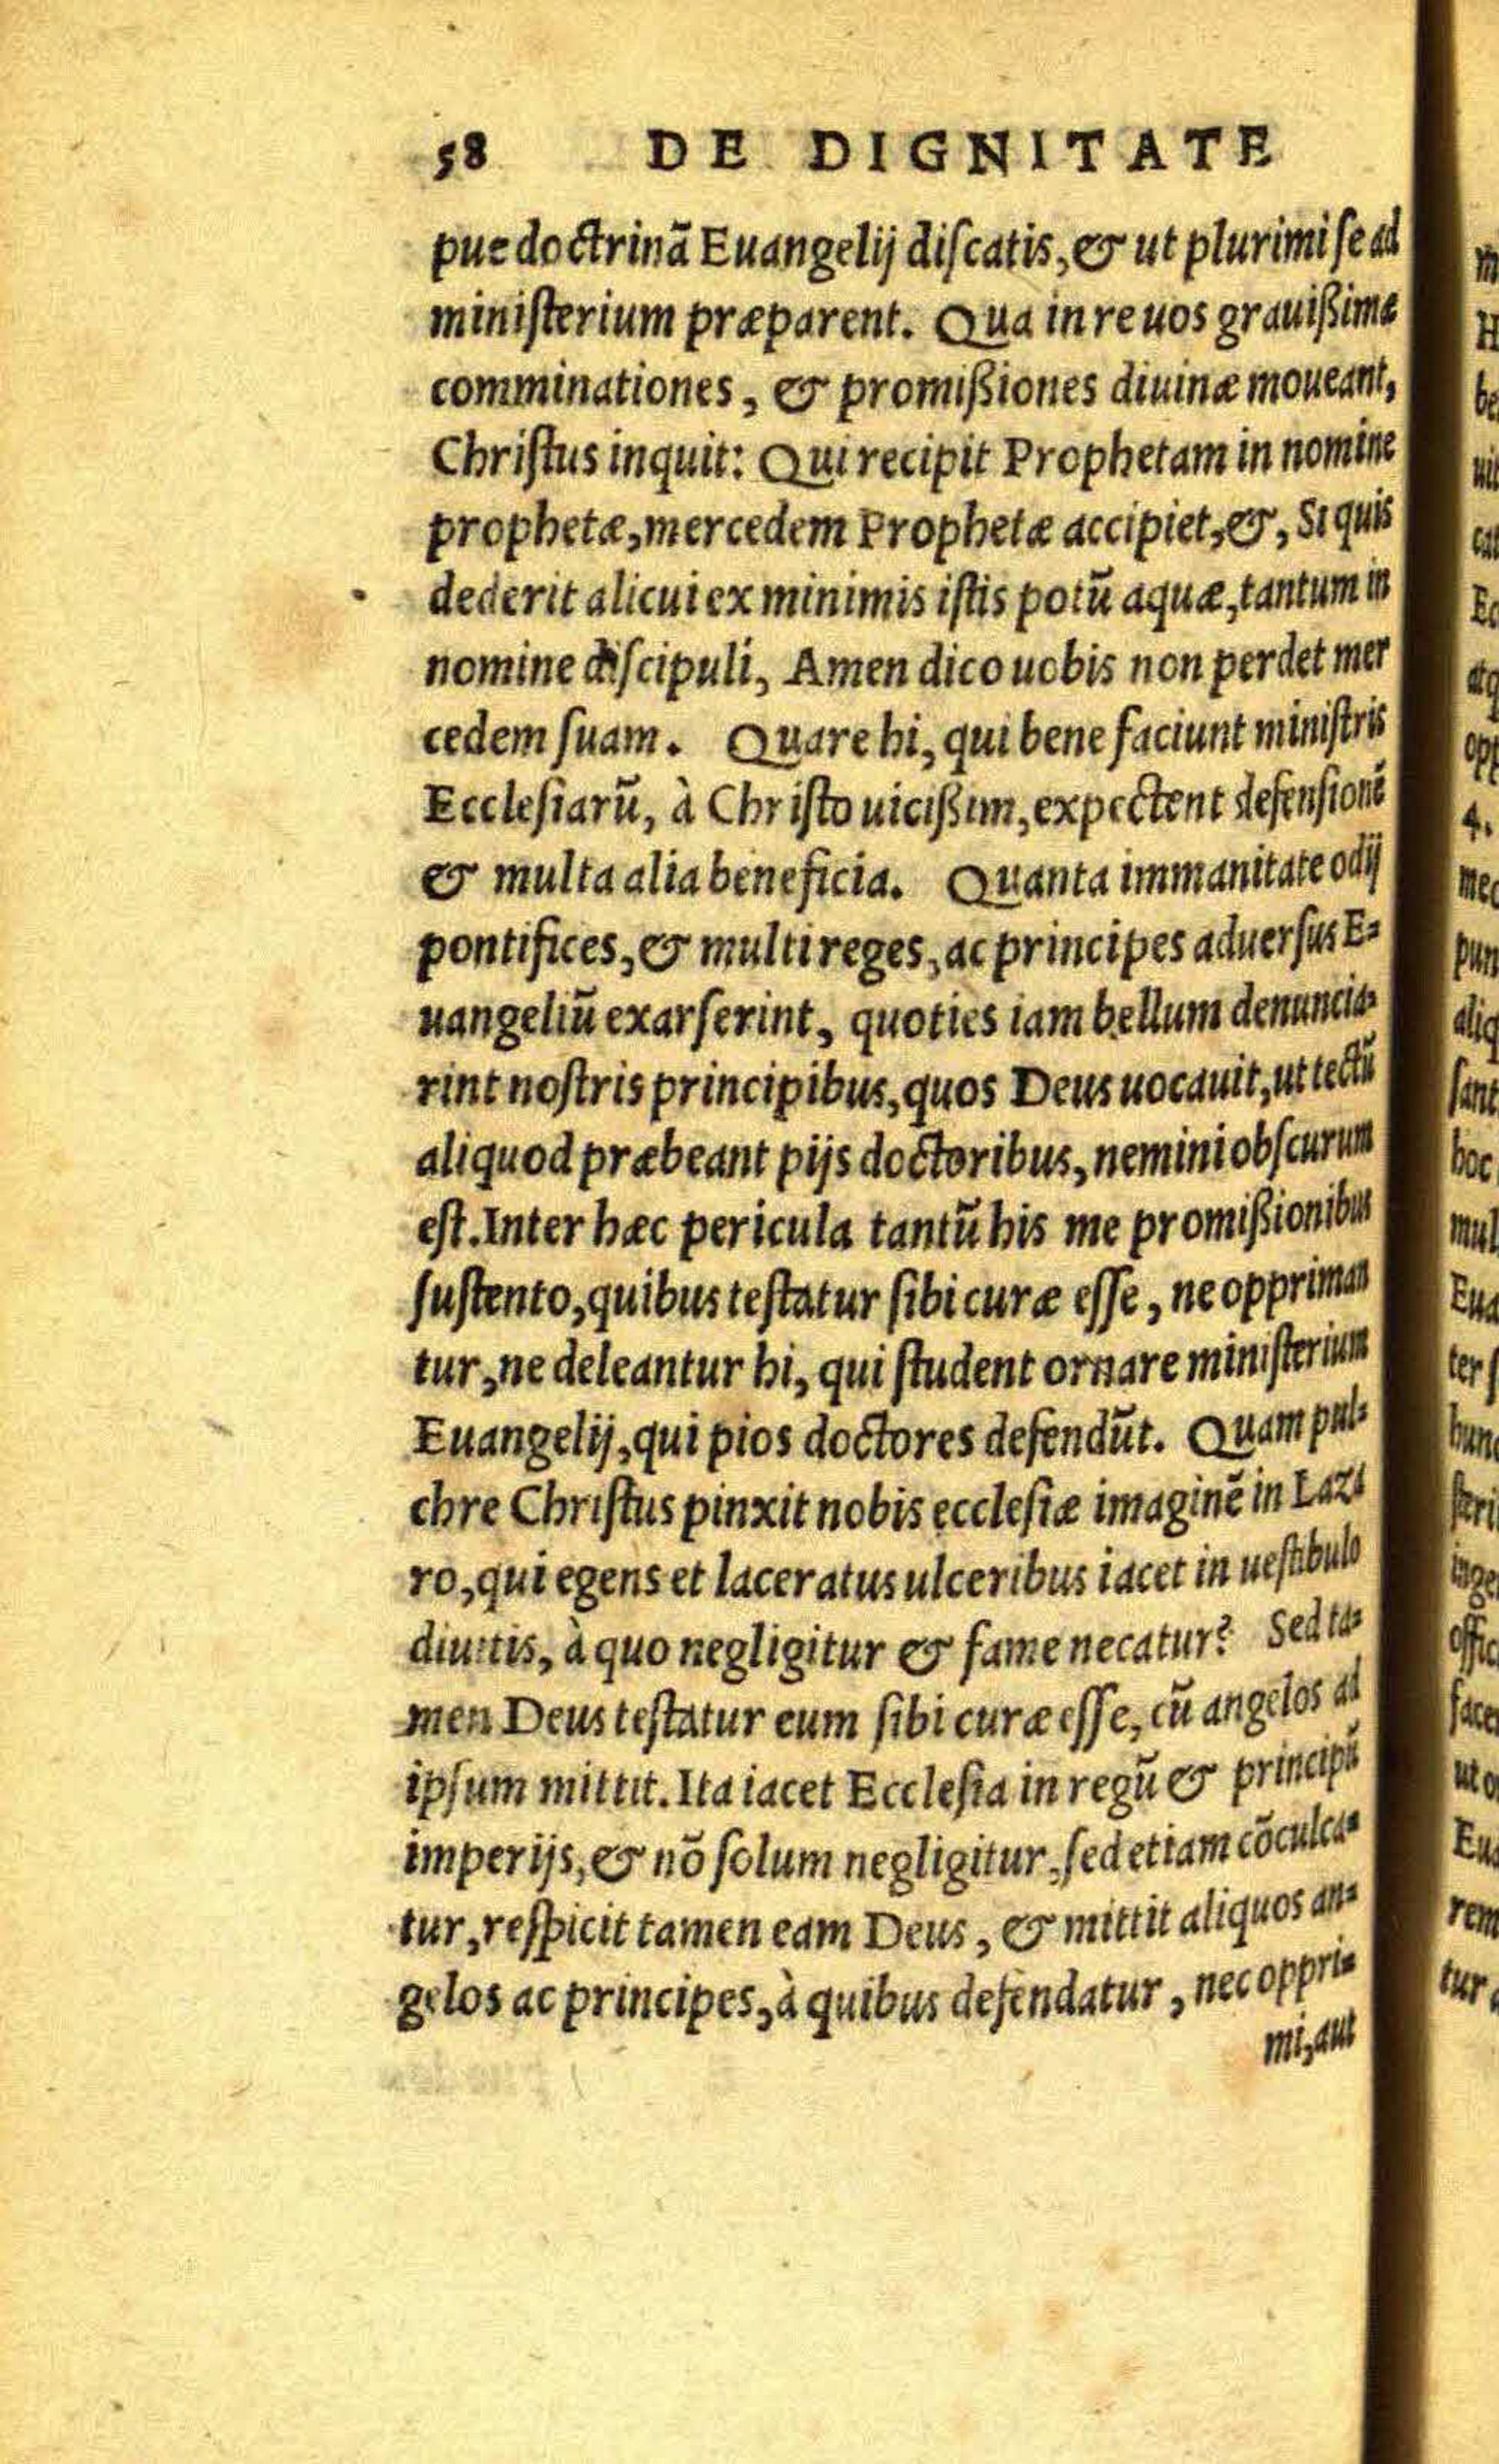 58 DE DIGNITATE
pue doctrinã Euangelij diſcatis, & ut plurimi ſe ad
miniſterium præparent. Qua in re uos grauißimæ
comminationes, & promißiones diuinæ moueant,
Chriſtus inquit: Qui recipit Prophetam in nomine
prophetæ, mercedem Prophetæ accipiet, &, Si quis
dederit alicui ex minimis iſtis potũ aquæ, tantum in
nomine diſcipuli, Amen dico uobis non perdet mer
cedem ſuam. Quare hi, qui bene faciunt miniſtris
Eccleſiarũ, à Chriſto uicißim, expectent defenſionẽ
& multa alia beneficia. Quanta immanitate odij
pontifices, & multi reges, ac principes aduerſus E=
uangeliũ exarſerint, quoties iam bellum denuncia=
rint noſtris principibus, quos Deus uocauit, ut tectũ
aliquod præbeant pijs doctoribus, nemini obſcurum
eſt. Inter hæc pericula tantũ his me promißionibus
ſuſtento, quibus teſtatur ſibi curæ eſſe, ne oppriman
tur, ne deleantur hi, qui ſtudent ornare miniſterium
Euangelij, qui pios doctores defendũt. Quam pul=
chre Chriſtus pinxit nobis eccleſiæ imaginẽ in Laza
ro, qui egens et laceratus ulceribus iacet in ueſtibulo
diuitis, à quo negligitur & fame necatur? Sed ta=
men Deus teſtatur eum ſibi curæ eſſe, cũ angelos ad
ipſum mittit. Ita iacet Eccleſia in regũ & principũ
imperijs, & nõ ſolum negligitur, ſed etiam cõculca=
tur, reſpicit tamen eam Deus, & mittit aliquos an=
gelos ac principes, à quibus defendatur, nec oppri=
mi, aut